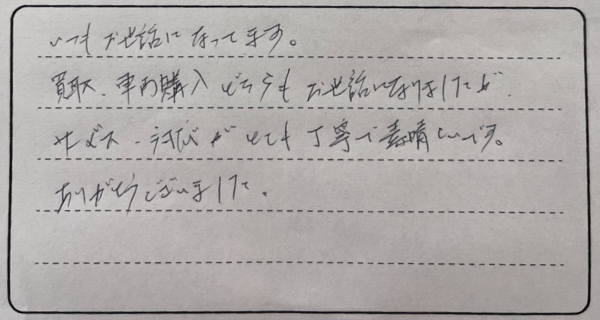 いつもお世話になってます。
買取、車両購入どちらもお世話になりましたが、
サービスがとても丁寧で素晴しいです。
ありがとうございました。